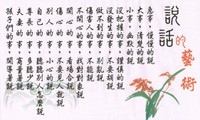 說話的藝術
急事，慢慢的說
大事，清楚的說
小事，幽默的說
沒把握的事，謹慎的說
沒發生的事，不要胡說
做不到的事，別亂說
傷害人的事，不能說
討厭的事，對事不對人的說
開心的事，看場合說
傷心的事，不要見人就說
別人的事，小心的說
自己的事，聽聽自己的心怎麼說
尊長的事，多聽少說
夫妻的事，商量著說
孩子們的事，開導著說